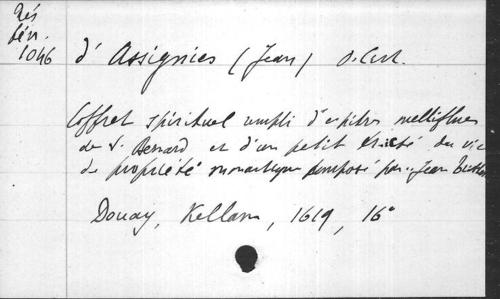 Rés
bén.
1046
d'Assignies (Jean) o. Cist.
Coffret spirituel rempli d'epitres melliflues
de S. Bernard et d'un petit traicté du vice
de propriété monastique composé par.. Jean
Douay, Kellam, 1619, 16°